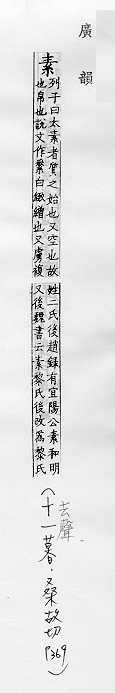 廣韻
素 列子曰太素者質之始也又空也故
也帛也說文作𦃃白緻繒也又虜複
姓二氏後趙錄有宜陽公素和明
又後魏書云素黎氏後改為黎氏
去聲
(十一暮,又桑故切 P369)